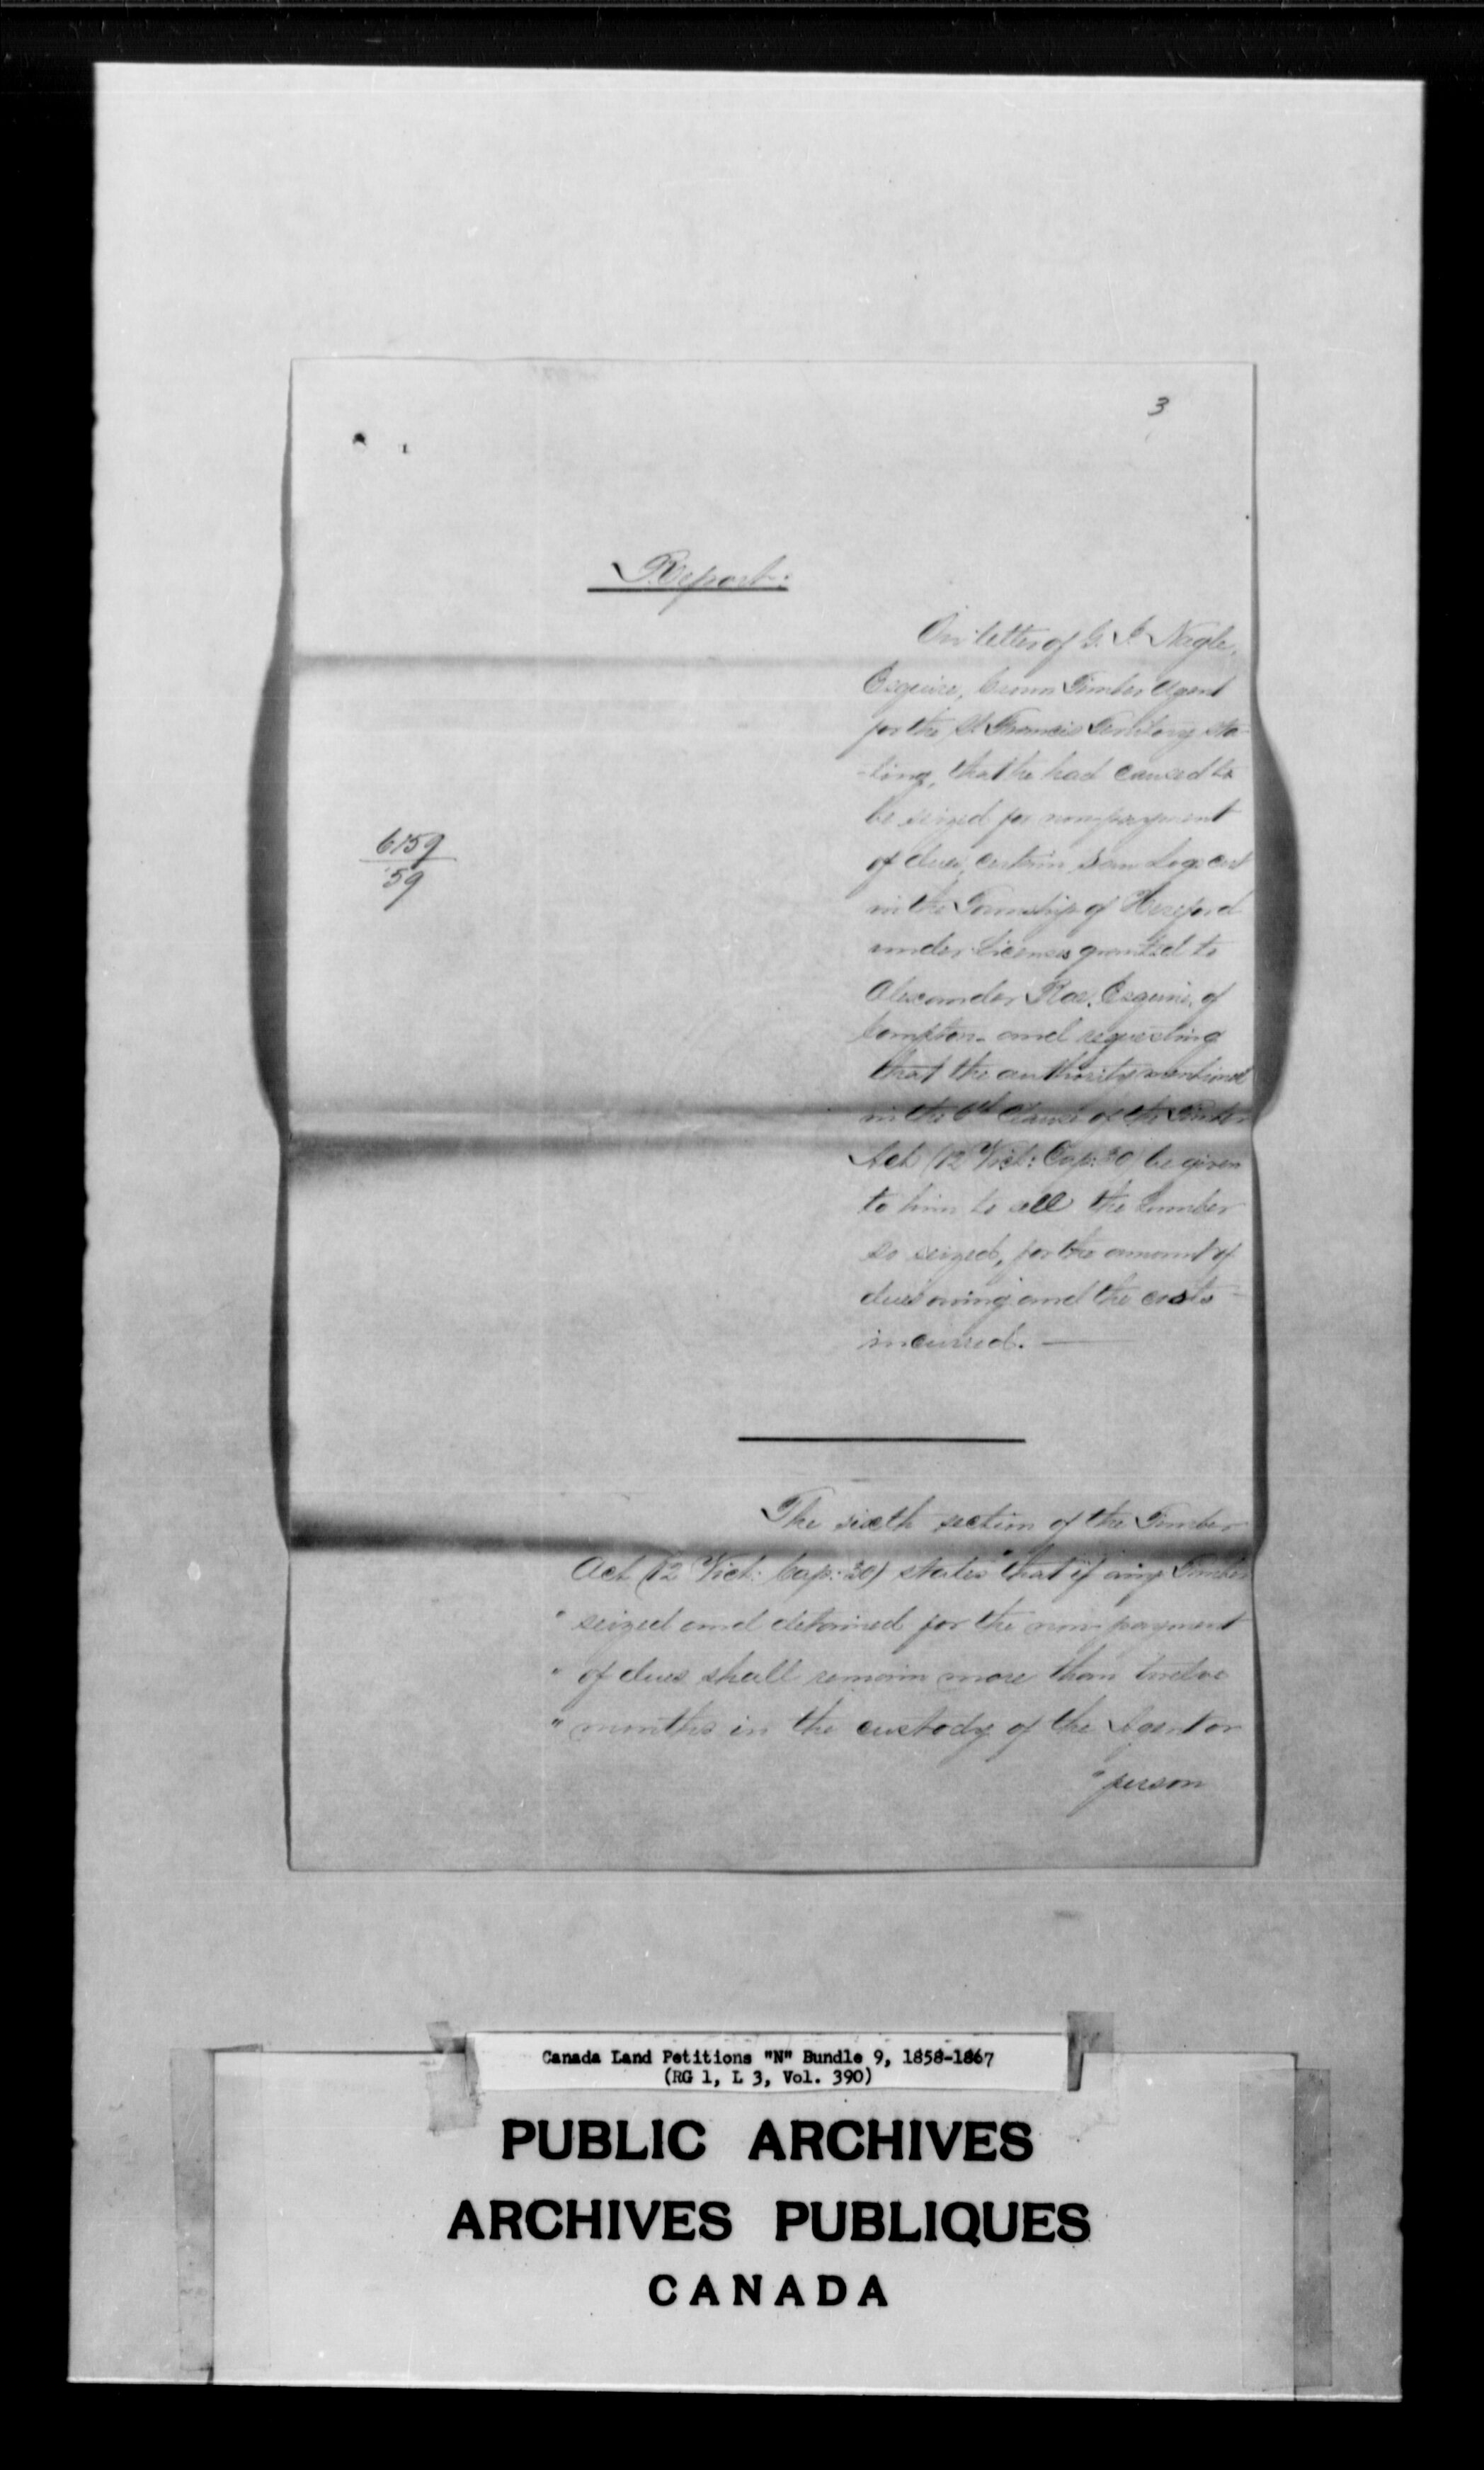 3
Report:
On letter of G. J. Nagle,
Esquire, Crown Timber Agent
for the St Francis Territory sta
-ting, that he had caused to
be seized for non payment
of dues, certain Saw Logs cut
in the Township of Hereford
under Licenses granted to
Alexander Rae, Esquire, of
Compton - and requesting
that the authority mentioned
in the 6th Clause of the Timber
Act (12 Vict: Cap: 30) be given
to him to sell the Lumber
so seized, for the amount of
dues owing and the costs
incurred. —
6159
59
The sixth section of the Timber
Act (12 Vict: Cap: 30) states "that if any Timber
" seized and detained for the non payment
" of dues shall remain more than twelve
" months in the custody of the Agent or
" person
Canada Land Petitions "N" Bundle 9, 1858-1867
(RG 1, L 3, Vol. 390)
PUBLIC ARCHIVES
ARCHIVES PUBLIQUES
CANADA